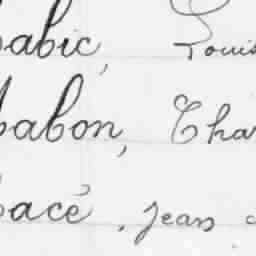 babic, Louis
babon, Char
bacé, Jean